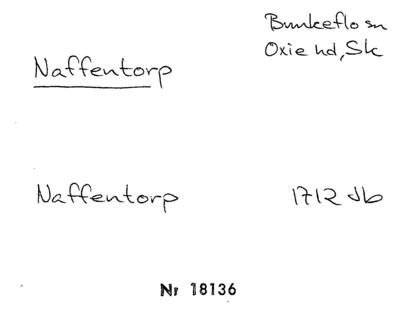 Bunkeflo sn
Oxie hd, Sk
Naffentorp
Naffentorp 1712 Jb
Nr 18136